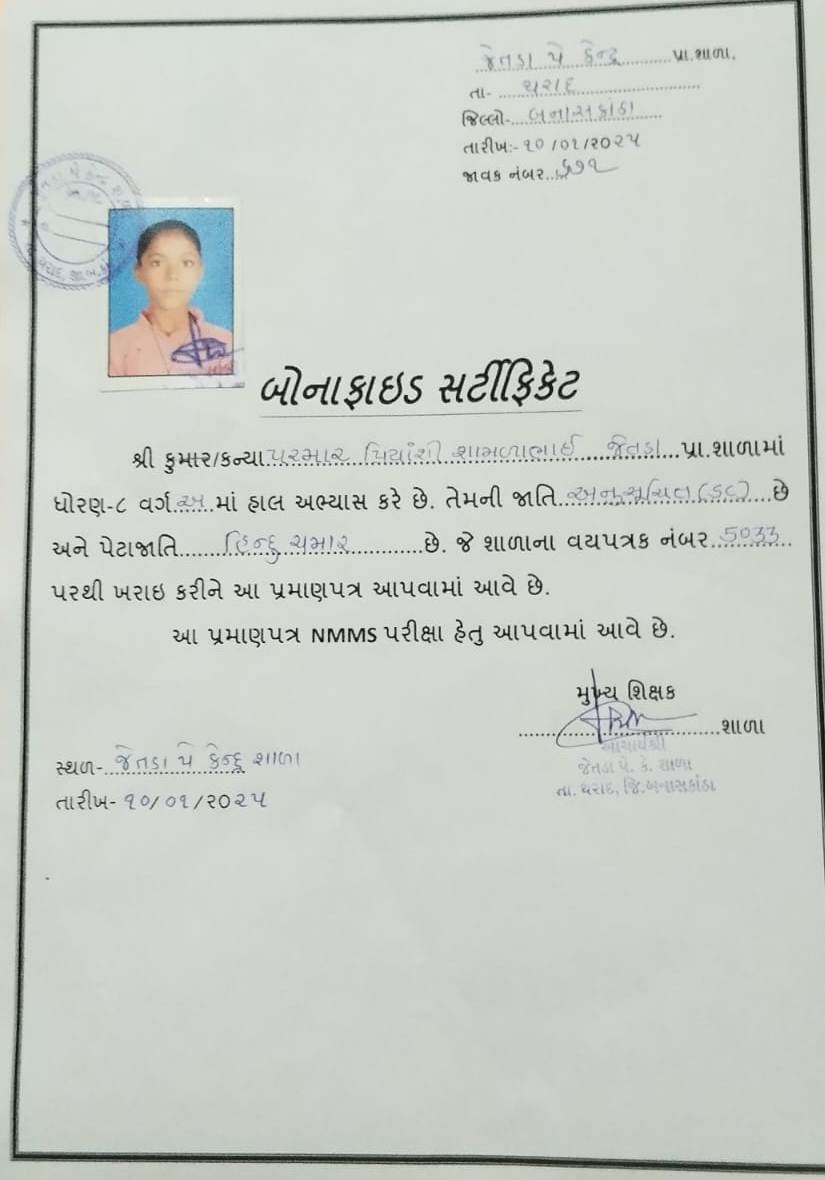 જેતડા પે કેન્દ્ર પ્રા.શાળા.
તા- થરાદ
જિલ્લો- બનાસકાંઠા
તારીખ:- ૧૦/૦૧/૨૦૨૫
જાવક નંબર. ૬૭૧
બોનાફાઇડ સર્ટીફિકેટ
શ્રી કુમાર/કન્યા પરમાર પ્રિયાંશી શામળાભાઈ જેતડા પ્રા.શાળામાં
ધોરણ-૮ વર્ગ અ માં હાલ અભ્યાસ કરે છે. તેમની જાતિ અનુસૂચિત (SC) છે
અને પેટાજાતિ હિન્દુ ચમાર છે. જે શાળાના વયપત્રક નંબર 5033
પરથી ખરાઇ કરીને આ પ્રમાણપત્ર આપવામાં આવે છે.
આ પ્રમાણપત્ર NMMS પરીક્ષા હેતુ આપવામાં આવે છે.
મુખ્ય શિક્ષક
શાળા
આચાર્યશ્રી
જેતડા પે. કે. શાળા
તા. થરાદ, જિ.બનાસકાંઠા
સ્થળ- જેતડા પે કેન્દ્ર શાળા
તારીખ- ૧૦/૦૧/૨૦૨૫